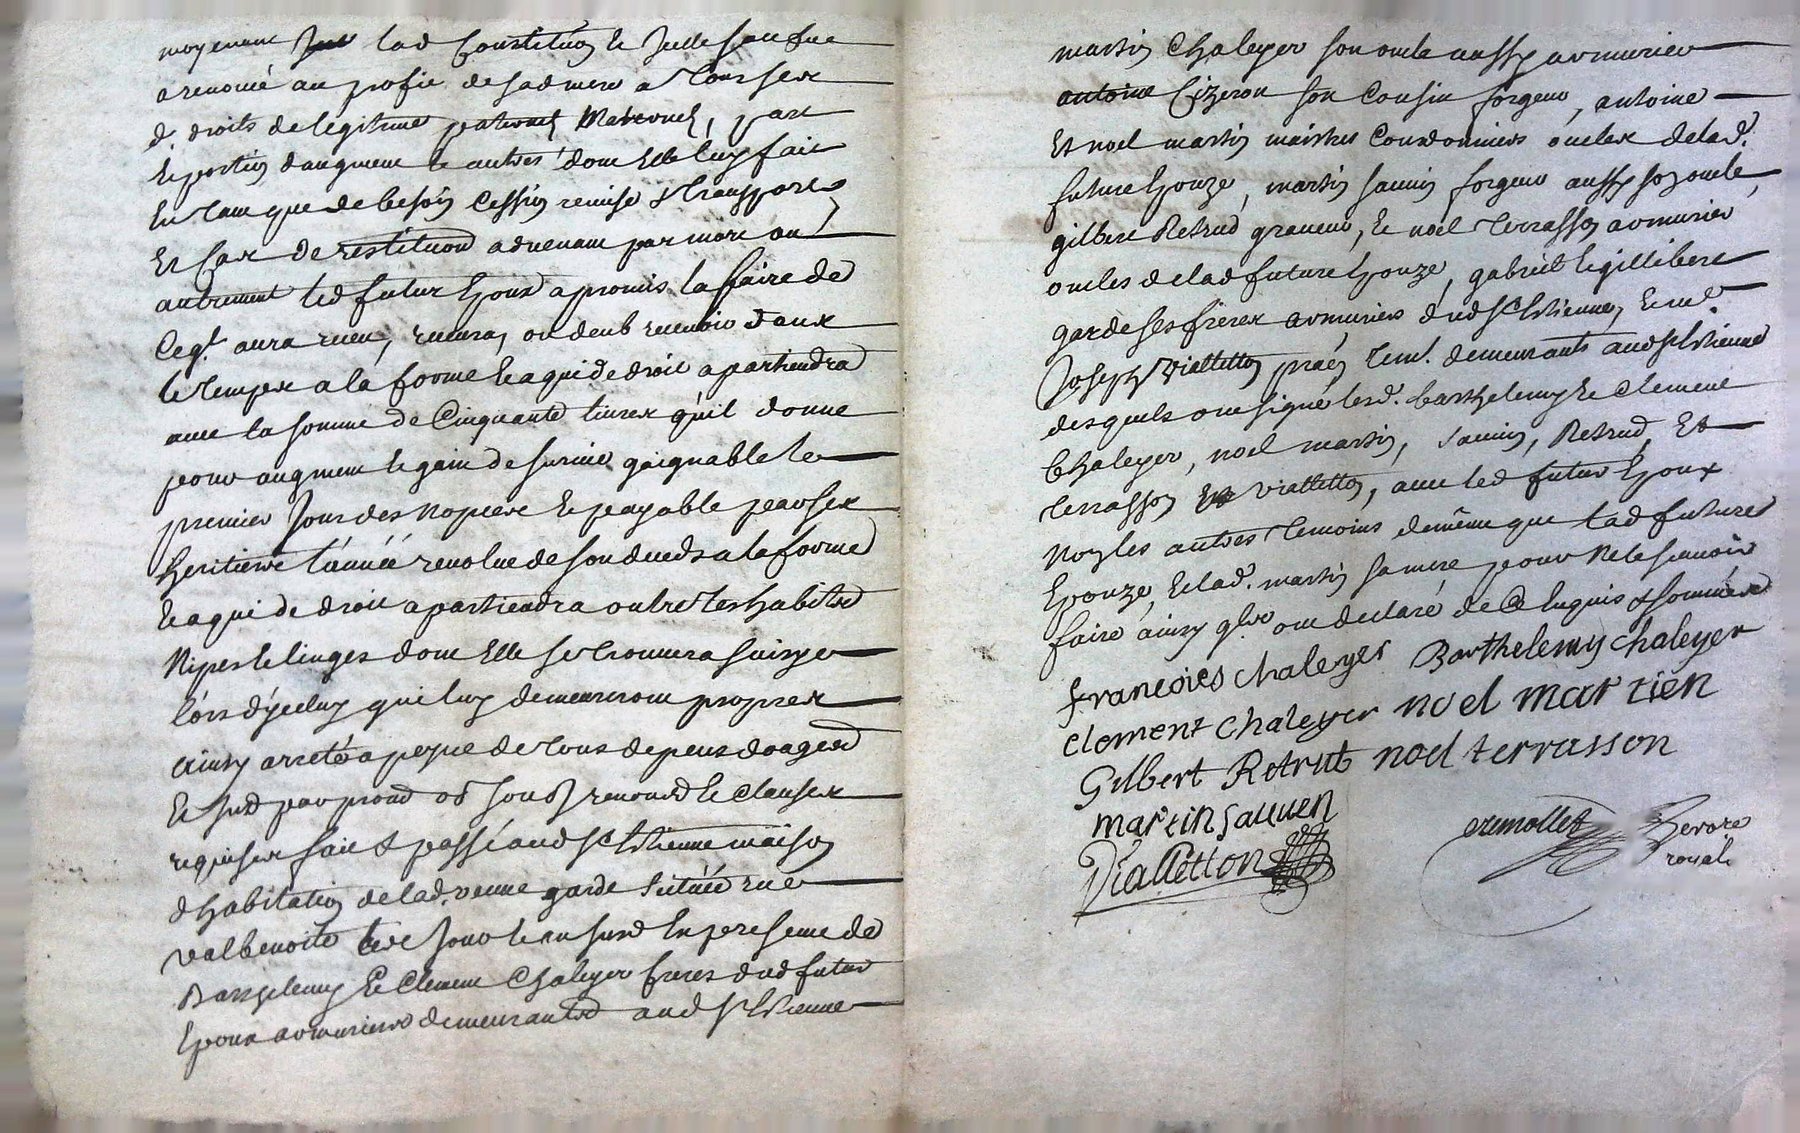 moyenant lad Constitūon Icelle future
a renoncé au profit de sad mere a tous ses
d. droits de legitime paternel Maternel, part
Et portion daugment et autres dont Elle luy fait
En tant que de besoin Cession remise & transport
Et Cas de restitūond advenant par mort ou
autrement led futur Epoux a promis la faire de
Ceq.l aura receu, recevra, ou deub recevoir d'aux
le temps a la forme Et a qui de droit apartiendra
avec la somme de Cinquante livres qu'il donne
pour augment Et gain de survie gaignable le
premier Jour des Nopces Et payable par ses
heritiers l'année revolue de son deceds a la forme
Et a qui de droit apartiendra outre les habits
Nipes Et linges dont Elle se trouvera saisye
lors d'yceluy qui luy demeureront propres
Ainsy arreté a peyne de tous depens domages
Et sud par promd obd soubd renond Et Clauses
requises fait & passé aud St Etienne maison
d'habitation de lad. veuve garde Scituée rue
valbenoite les Jour Et an susd En presence de
Barthelemy Et Clement Chaleyer freres dud futur
Epoux armuriers demeurants aud St Etienne
martin Chaleyer son oncle aussy armurier
antoine Cizeron son Cousin forgeur, antoine
Et noel martin maistres Courdonniers oncles de lad.
future Epouze, martin sauvin forgeur aussy son oncle,
gilbert Retrud graveur, Et noel Terrasson armurier
oncles de lad future Epouze, gabriel Et gillibert
garde ses freres armuriers dud St Etienne, Et me.
Joseph Vialletton pratn. Tem. demeurants aud St Etienne
desquels ont signé lesd. barthelemy Et Clement
Chaleyer, noel martin, Sauvin, Retrud, Et
terrasson Et Vialletton, avec led futur Epoux
Non les autres temoins de même que lad future
Epouze, Et lad. martin sa mere pour Ne le scavoir
faire ainsy qls. ont declaré de Ce Enquis & sommés
francoies chaleyer Barthelemy chaleyer
clement chaleyer noel martien
Gilbert Retrut noel terrasson
martin Sauuen
Vialletton
royal